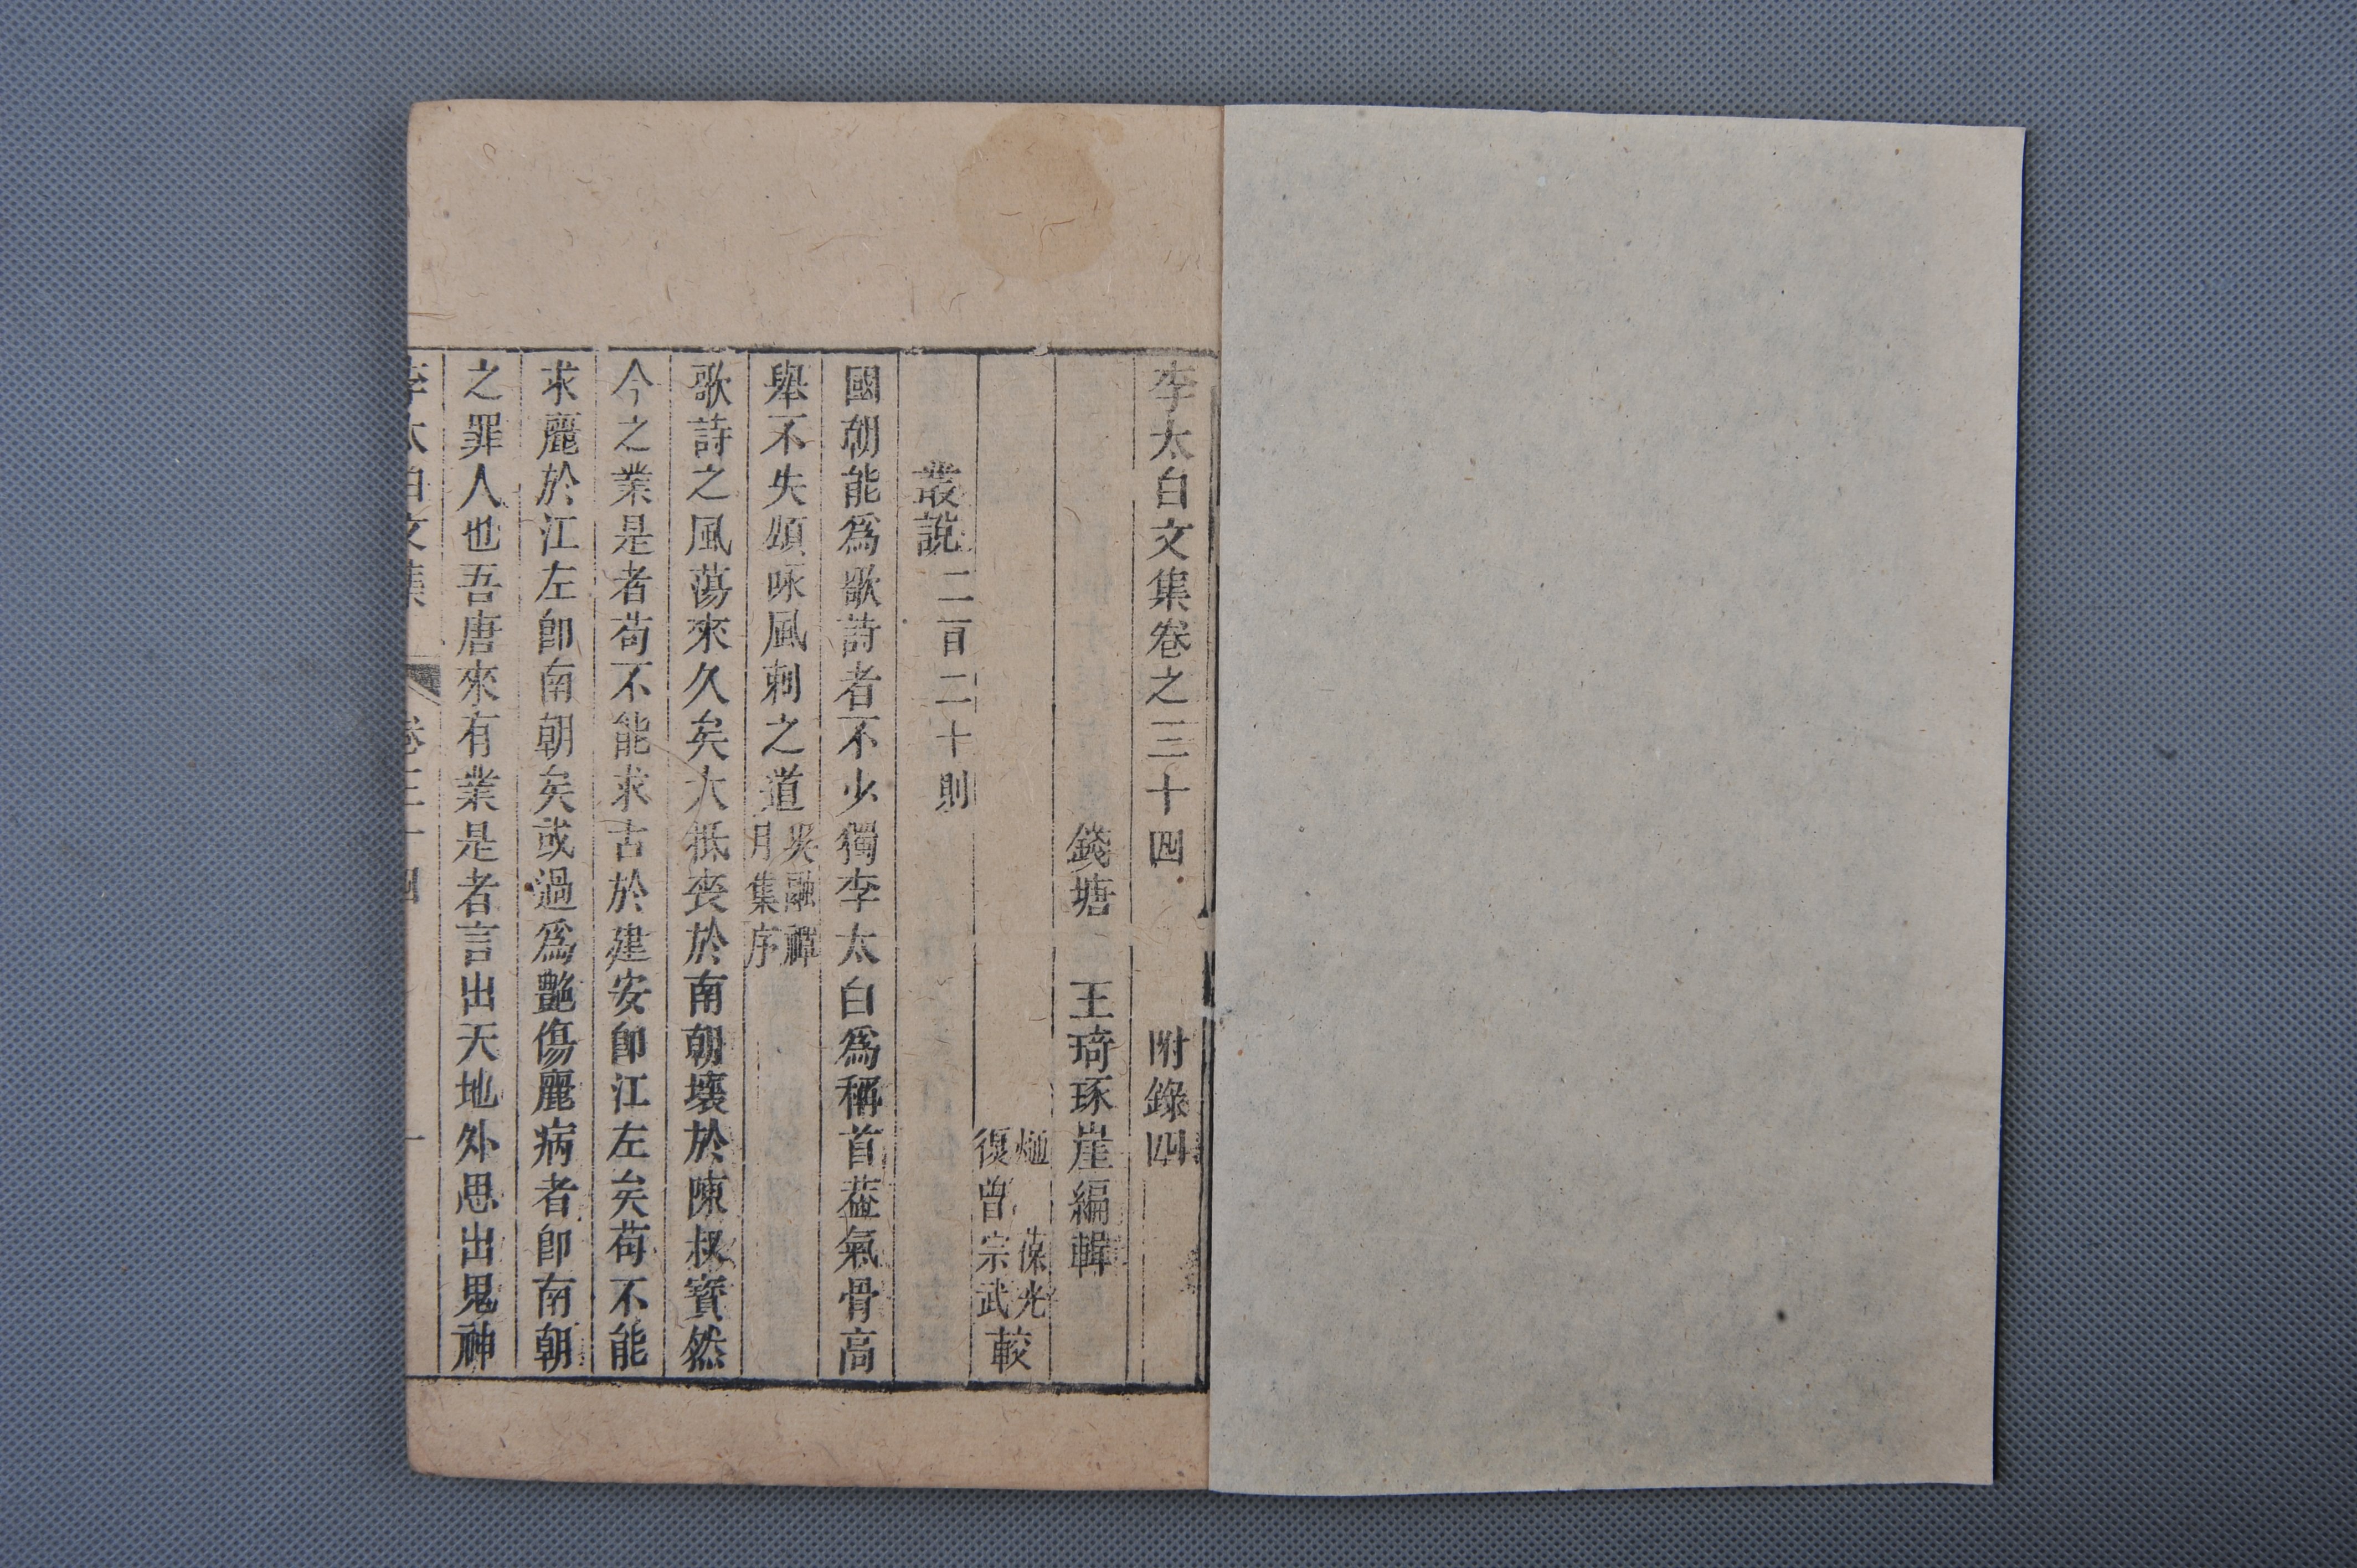 李太白文集卷之三十四 附錄四
錢塘 王琦琢崖編輯
燏 葆光
復曾宗武 較
叢說二百二十則
國朝能爲歌詩者不少獨李太白爲稱首葢氣骨高
舉不失頌咏風刺之道吳融禪月集序
歌詩之風蕩來久矣大抵喪於南朝壞於陳叔寶然
今之業是者苟不能求古於建安卽江左矣苟不能
求麗於江左卽南朝矣或過爲艷傷麗病者卽南朝
之罪人也吾唐來有業是者言出天地外思出鬼神
李太白文集 卷三十四 一